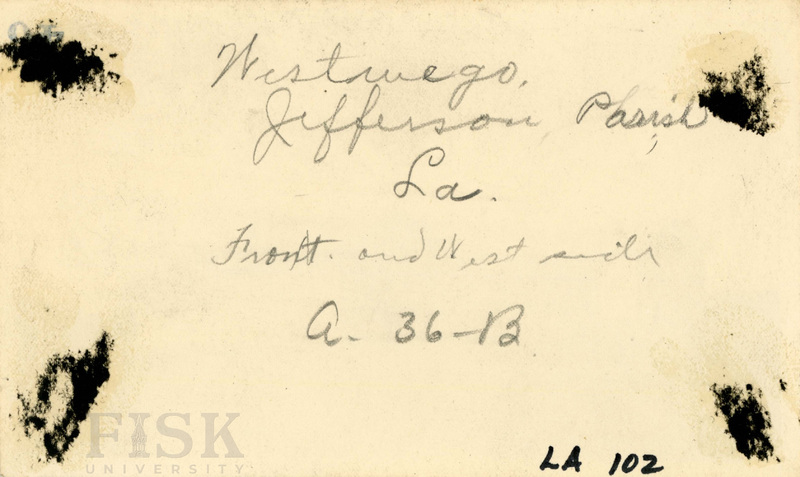 Westwego,
Jefferson, Pharish
La.
Front. and West side
A- 36-B
LA 102
FISK
UNIVERSITY